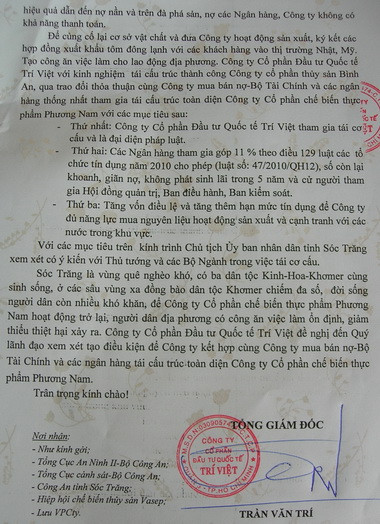 hiệu quả dẫn đến nợ nần và trên đà phá sản, nợ các Ngân hàng, Công ty không có
khả năng thanh toán.
Để củng cố lại cơ sở vật chất và đưa Công ty hoạt động sản xuất, ký kết các
hợp đồng xuất khẩu tôm đông lạnh với các khách hàng vào thị trường Nhật, Mỹ.
Tạo công ăn việc làm cho lao động địa phương. Công ty Cổ phần Đầu tư Quốc tế
Trí Việt với kinh nghiệm tái cấu trúc thành công Công ty cổ phần thủy sản Bình
An, qua trao đổi thỏa thuận cùng Công ty mua bán nợ-Bộ Tài Chính và các ngân
hàng thống nhất tham gia tái cấu trúc toàn diện Công ty Cổ phần chế biến thực
phẩm Phương Nam với các mục tiêu sau:
- Thứ nhất: Công ty Cổ phần Đầu tư Quốc tế Trí Việt tham gia tái cơ
cấu và là đại diện pháp luật.
- Thứ hai: Các Ngân hàng tham gia góp 11 % theo điều 129 luật các tổ
chức tín dụng năm 2010 cho phép (luật số: 47/2010/QH12), số còn lại
khoanh, giãn nợ, không phát sinh lãi trong 5 năm và cử người tham
gia Hội đồng quản trị, Ban điều hành, Ban kiểm soát.
- Thứ ba: Tăng vốn điều lệ và tăng thêm hạn mức tín dụng để Công ty
đủ năng lực mua nguyên liệu hoạt động sản xuất và cạnh tranh với các
nước trong khu vực.
Với các mục tiêu trên kính trình Chủ tịch Ủy ban nhân dân tỉnh Sóc Trăng
xem xét có ý kiến với Thủ tướng và các Bộ Ngành trong việc tái cơ cấu.
Sóc Trăng là vùng quê nghèo khó, có ba dân tộc Kinh-Hoa-Khomer cùng
sinh sống, ở các sâu vùng xa đồng bào dân tộc Khomer chiếm đa số, đời sống
người dân còn nhiều khó khăn, để Công ty Cổ phần chế biến thực phẩm Phương Nam
hoạt động trở lại, người dân địa phương có công ăn việc làm ổn định, giảm
thiểu thiệt hại xảy ra. Công ty Cổ phần Đầu tư Quốc tế Trí Việt đề nghị đến Quý
lãnh đạo xem xét tạo điều kiện để Công ty kết hợp cùng Công ty mua bán nợ-Bộ
Tài Chính và các ngân hàng tái cấu trúc toàn diện Công ty Cổ phần chế biến thực
phẩm Phương Nam.
Trân trọng kính chào!
TỔNG GIÁM ĐỐC
CÔNG TY
CỔ PHẦN
ĐẦU TƯ QUỐC TẾ
TRÍ VIỆT
TP.HỒ CHÍ MINH
Nơi nhận:
- Như kính gởi;
- Tổng Cục An Ninh II-Bộ Công An;
- Tổng Cục cảnh sát-Bộ Công An;
- Công An tỉnh Sóc Trăng;
- Hiệp hội chế biến thủy sản Vasep;
- Lưu VPCty.
TRẦN VĂN TRÍ